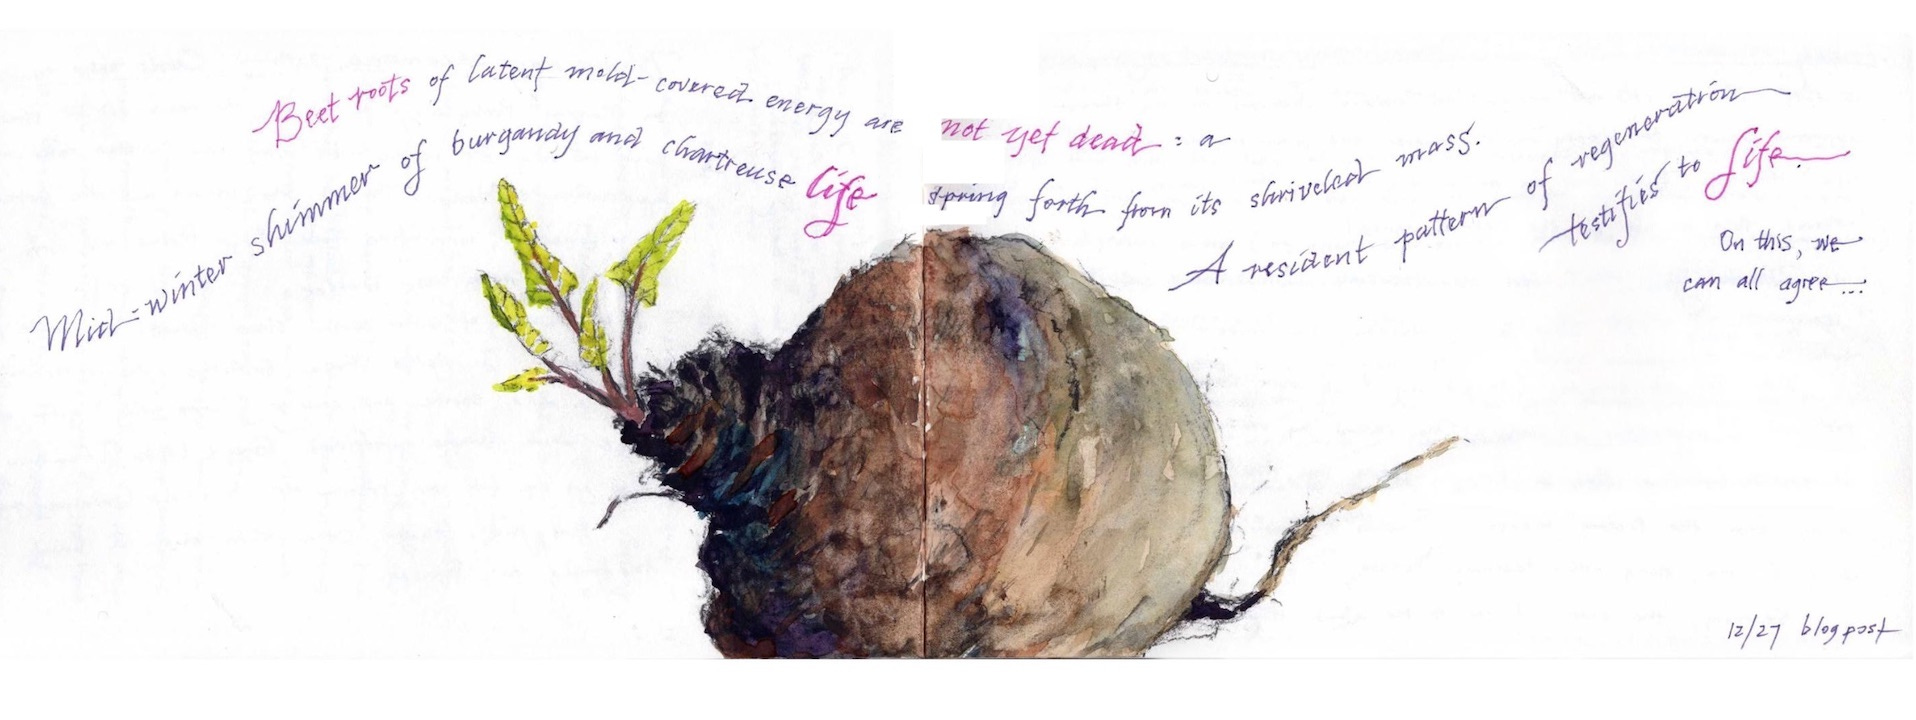 Beet roots of latent mold-covered energy are not yet dead : a
Mid-winter shimmer of burgandy and chartreuse life spring forth from its shriveled mass.
A resident pattern of regeneration
testifies to life.
On this, we
can all agree...
12/27 blog post